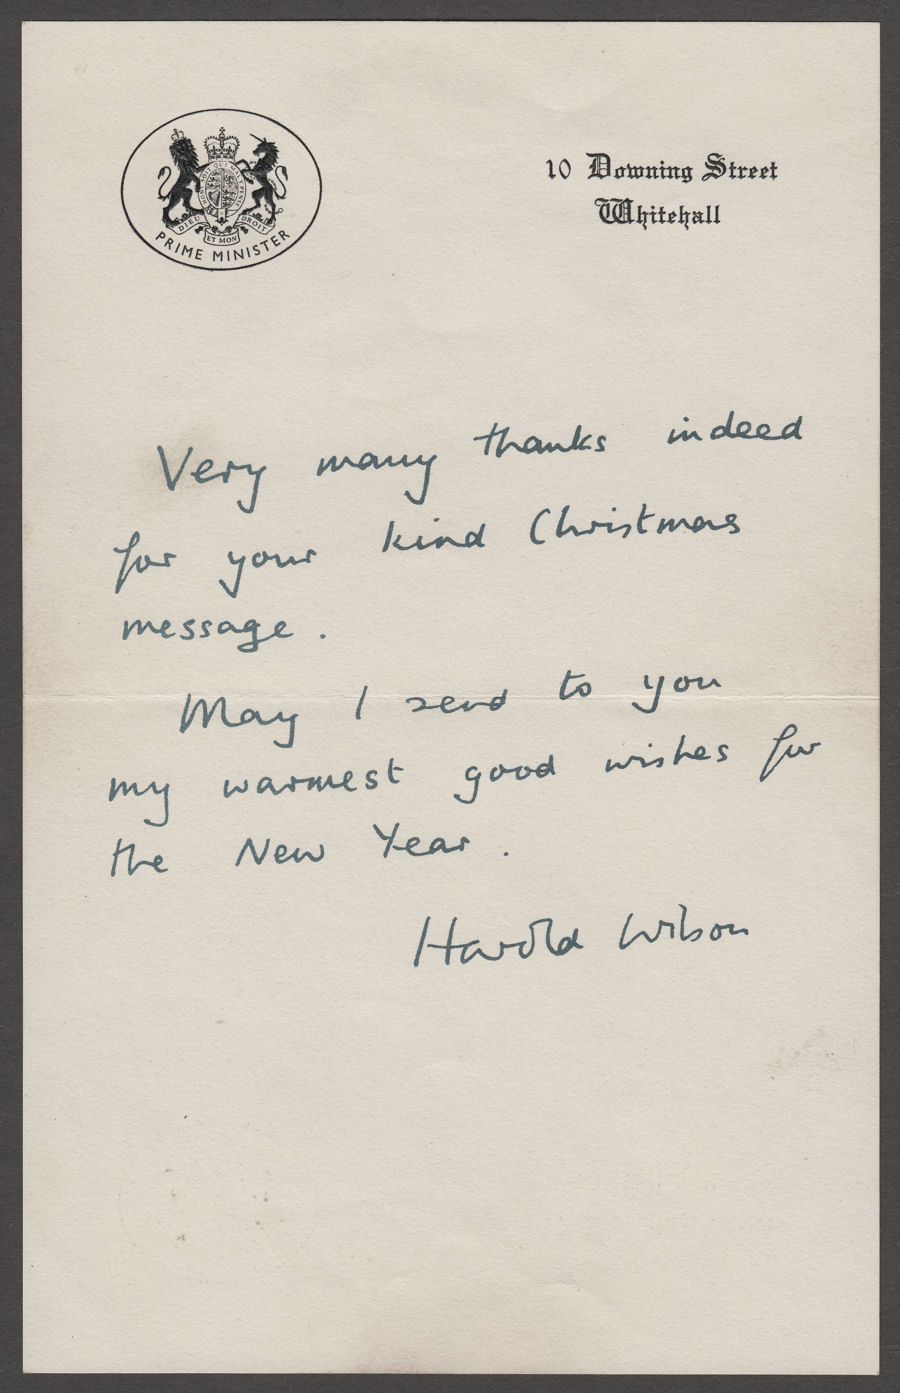 10 Downing Street
Whitehall
DIEU ET MON DROIT
PRIME MINISTER
Very many thanks indeed
for your kind Christmas
message.
May I send to you
my warmest good wishes for
the New Year.
Harold Wilson